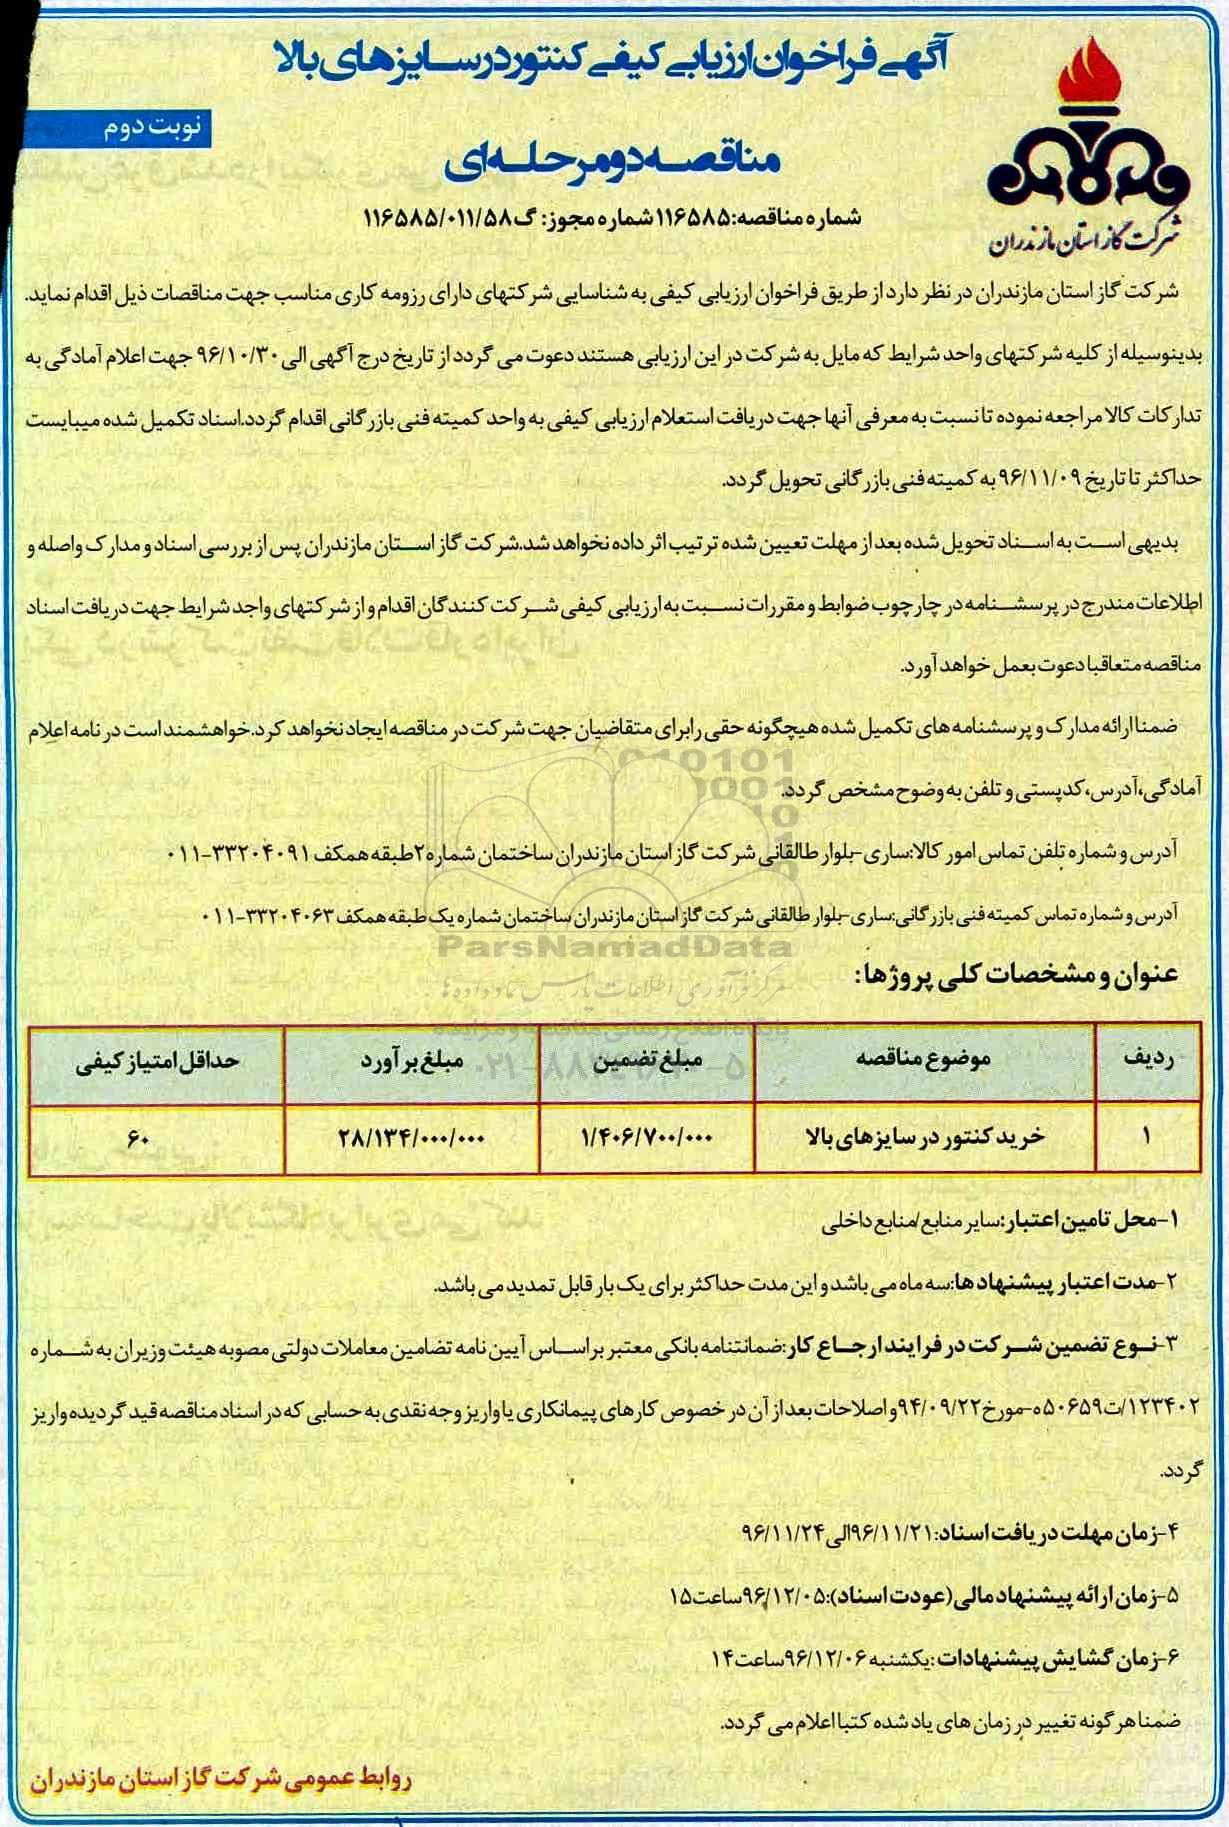 آگهی فراخوان ارزیابی کیفی کنتور در سایزهای بالا
نوبت دوم
مناقصه دو مرحله ای
شرکت گاز استان مازندران
شماره مناقصه: ۱۱۶۵۸۵ شماره مجوز: گ ۱۱۶۵۸۵/۰۱۱/۵۸
شرکت گاز استان مازندران در نظر دارد از طریق فراخوان ارزیابی کیفی به شناسایی شرکتهای دارای رزومه کاری مناسب جهت مناقصات ذیل اقدام نماید.
بدینوسیله از کلیه شرکتهای واحد شرایط که مایل به شرکت در این ارزیابی هستند دعوت می گردد از تاریخ درج آگهی الی ۹۶/۱۰/۳۰ جهت اعلام آمادگی به
تدارکات کالا مراجعه نموده تا نسبت به معرفی آنها جهت دریافت استعلام ارزیابی کیفی به واحد کمیته فنی بازرگانی اقدام گردد.اسناد تکمیل شده میبایست
حداکثر تا تاریخ ۹۶/۱۱/۰۹ به کمیته فنی بازرگانی تحویل گردد.
بدیهی است به اسناد تحویل شده بعد از مهلت تعیین شده ترتیب اثر داده نخواهد شد.شرکت گاز استان مازندران پس از بررسی اسناد و مدارک واصله و
اطلاعات مندرج در پرسشنامه در چارچوب ضوابط و مقررات نسبت به ارزیابی کیفی شرکت کنندگان اقدام و از شرکتهای واجد شرایط جهت دریافت اسناد
مناقصه متعاقبا دعوت بعمل خواهد آورد.
ضمنا ارائه مدارک و پرسشنامه های تکمیل شده هیچگونه حقی را برای متقاضیان جهت شرکت در مناقصه ایجاد نخواهد کرد.خواهشمند است در نامه اعلام
آمادگی،آدرس،کدپستی و تلفن به وضوح مشخص گردد.
آدرس و شماره تلفن تماس امور کالا:ساری-بلوار طالقانی شرکت گاز استان مازندران ساختمان شماره ۲ طبقه همکف ۳۳۲۰۴۰۹۱-۰۱۱
آدرس و شماره تماس کمیته فنی بازرگانی:ساری-بلوار طالقانی شرکت گاز استان مازندران ساختمان شماره یک طبقه همکف ۳۳۲۰۴۰۶۳-۰۱۱
ParsNamadData
مرکز فرآوری اطلاعات پارس نماد داده ها
عنوان و مشخصات کلی پروژها:
ردیف موضوع مناقصه مبلغ تضمین مبلغ برآورد حداقل امتیاز کیفی
۱ خرید کنتور در سایزهای بالا ۱/۴۰۶/۷۰۰/۰۰۰ ۲۸/۱۳۴/۰۰۰/۰۰۰ ۶۰
۱-محل تامین اعتبار:سایر منابع/منابع داخلی
۲-مدت اعتبار پیشنهادها:سه ماه می باشد و این مدت حداکثر برای یک بار قابل تمدید می باشد.
۳-نوع تضمین شرکت در فرایند ارجاع کار:ضمانتنامه بانکی معتبر براساس آیین نامه تضامین معاملات دولتی مصوبه هیئت وزیران به شماره
۱۲۳۴۰۲/ت۵۰۶۵۹ه-مورخ ۹۴/۰۹/۲۲ و اصلاحات بعد از آن در خصوص کارهای پیمانکاری یا واریز وجه نقدی به حسابی که در اسناد مناقصه قید گردیده واریز
گردد.
۴-زمان مهلت دریافت اسناد: ۹۶/۱۱/۲۱ الی ۹۶/۱۱/۲۴
۵-زمان ارائه پیشنهاد مالی(عودت اسناد):۹۶/۱۲/۰۵ ساعت ۱۵
۶-زمان گشایش پیشنهادات :یکشنبه ۹۶/۱۲/۰۶ ساعت ۱۴
ضمنا هرگونه تغییر در زمان های یاد شده کتبا اعلام می گردد.
روابط عمومی شرکت گاز استان مازندران